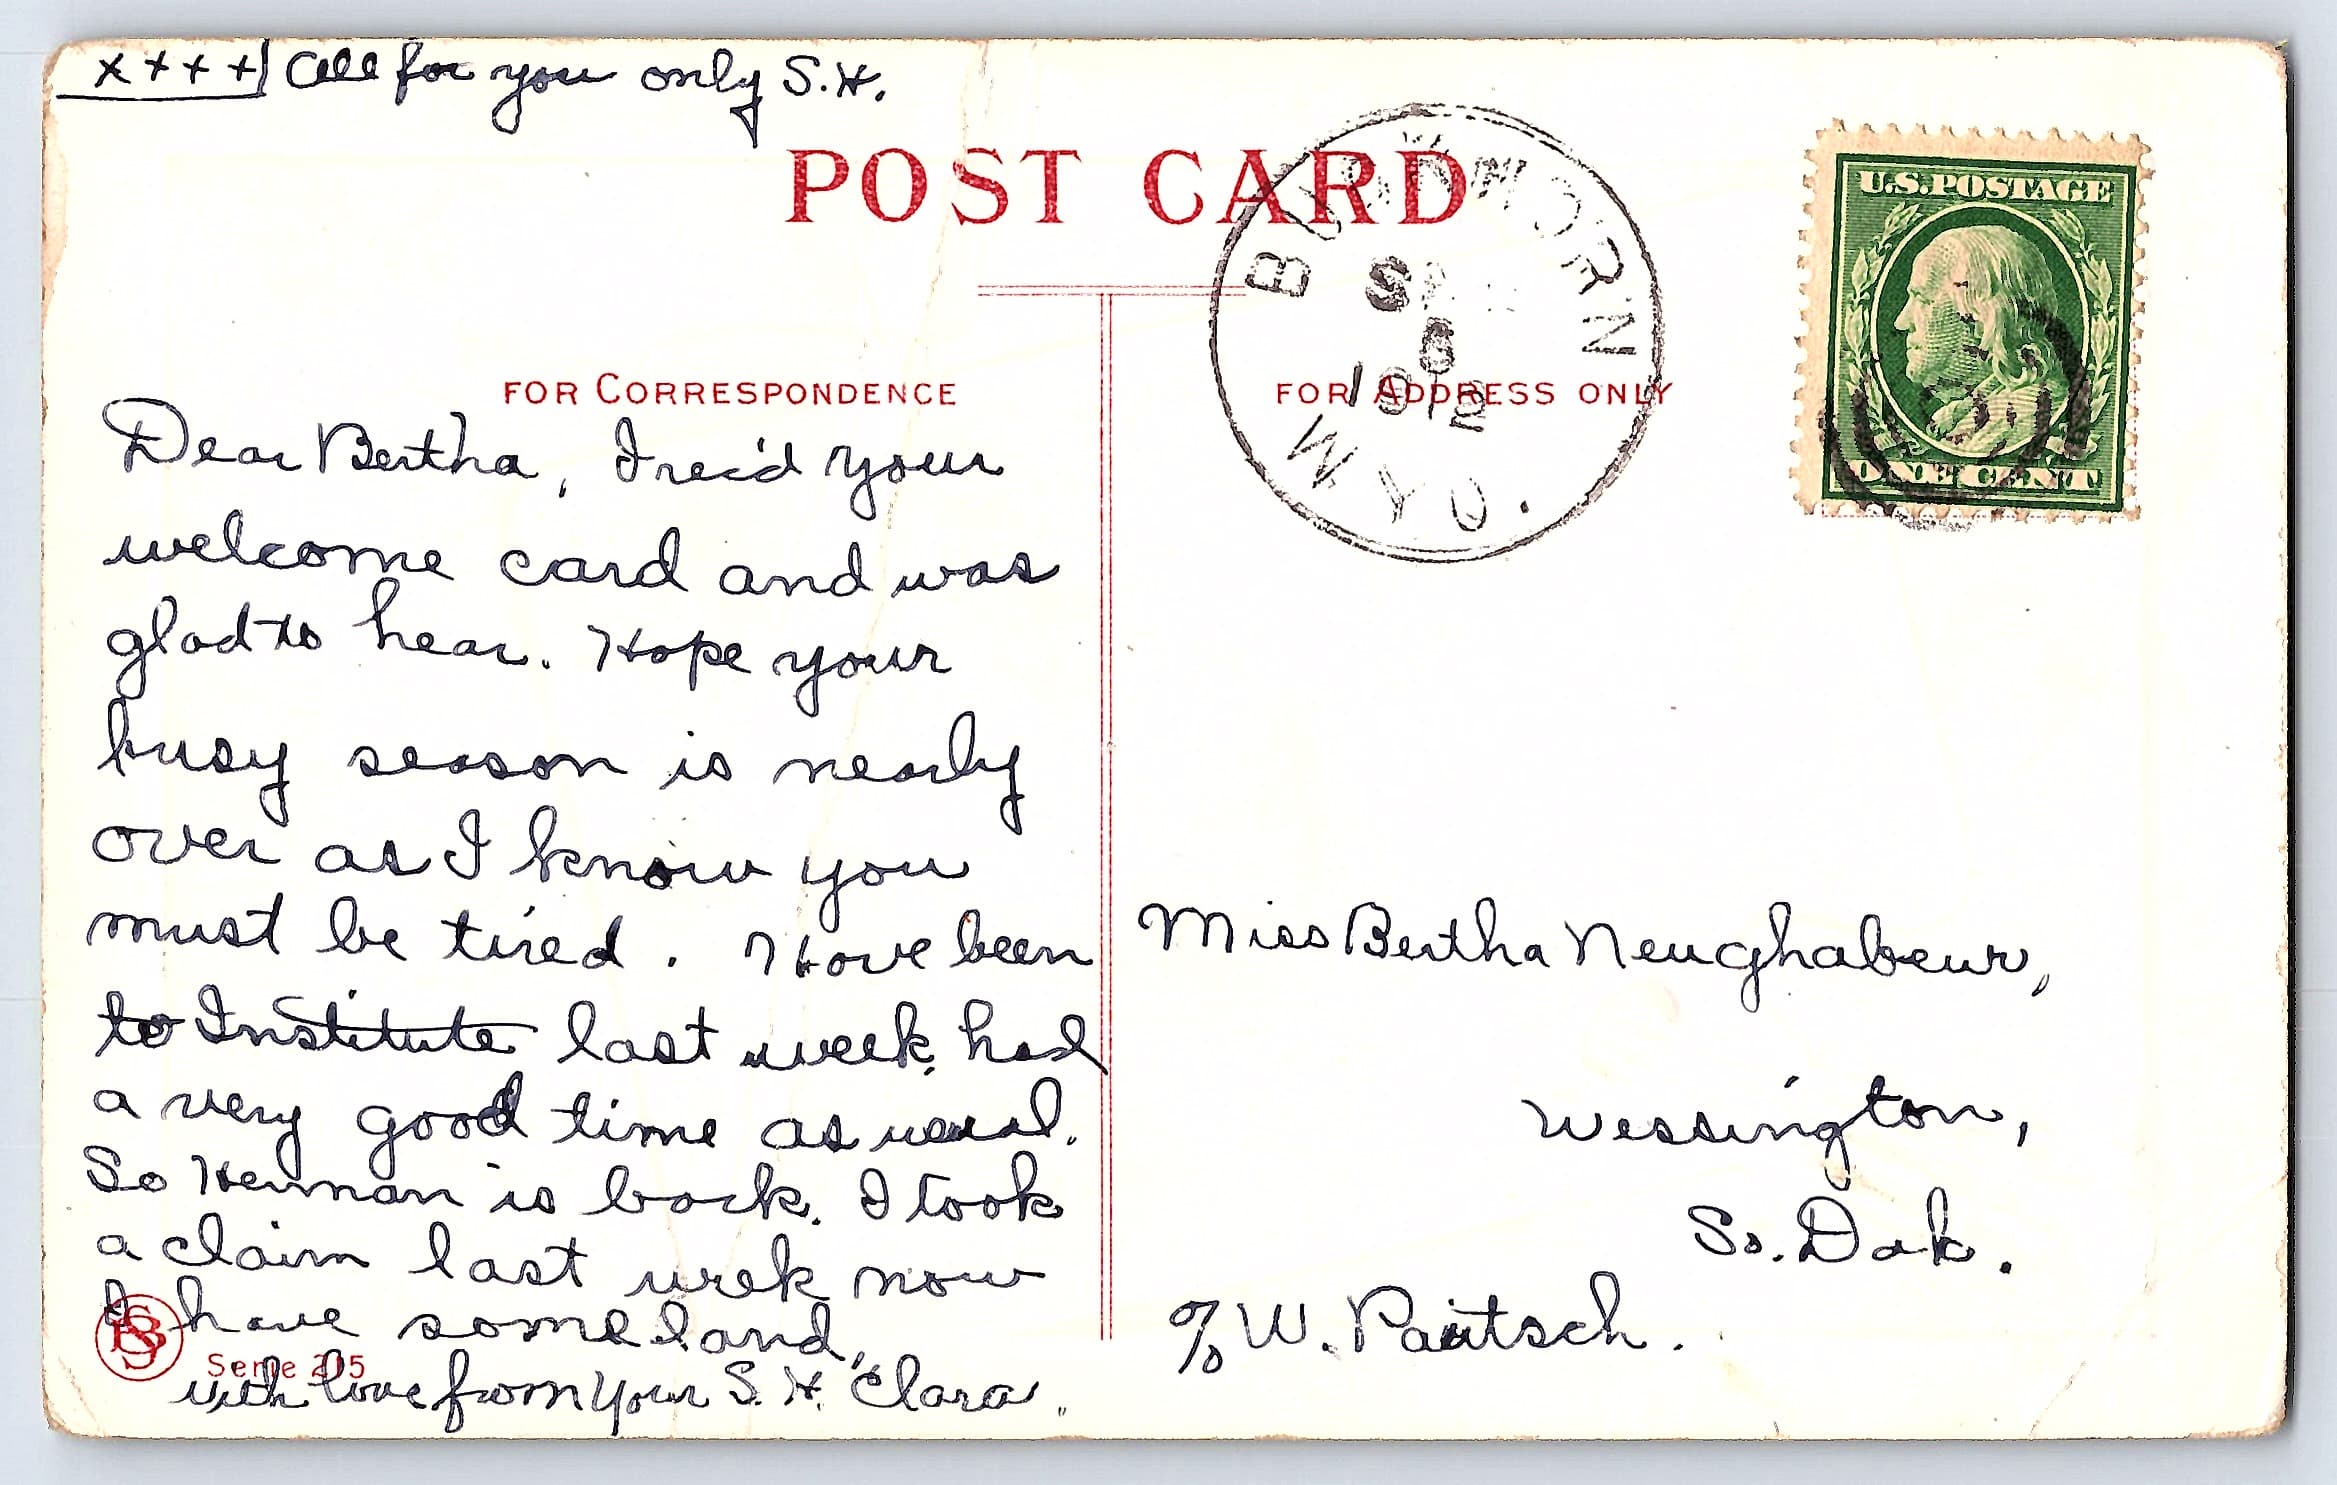 x + + + All for you only S.H.
POST CARD
BUCKHORN
SEP
6
1912
WYO.
U.S. POSTAGE
ONE CENT
FOR CORRESPONDENCE
FOR ADDRESS ONLY
Dear Bertha, I rec'd your
welcome card and was
glad to hear. Hope your
busy season is nearly
over as I know you
must be tired. Have been
to Institute last week, had
a very good time as usual.
So Herman is back. I took
a claim last week now
I have some land,
with love from your S.H. "Clara"
Serie 205
Miss Bertha Neughabeur,
Wessington,
So. Dak.
c/o W. Pautsch.